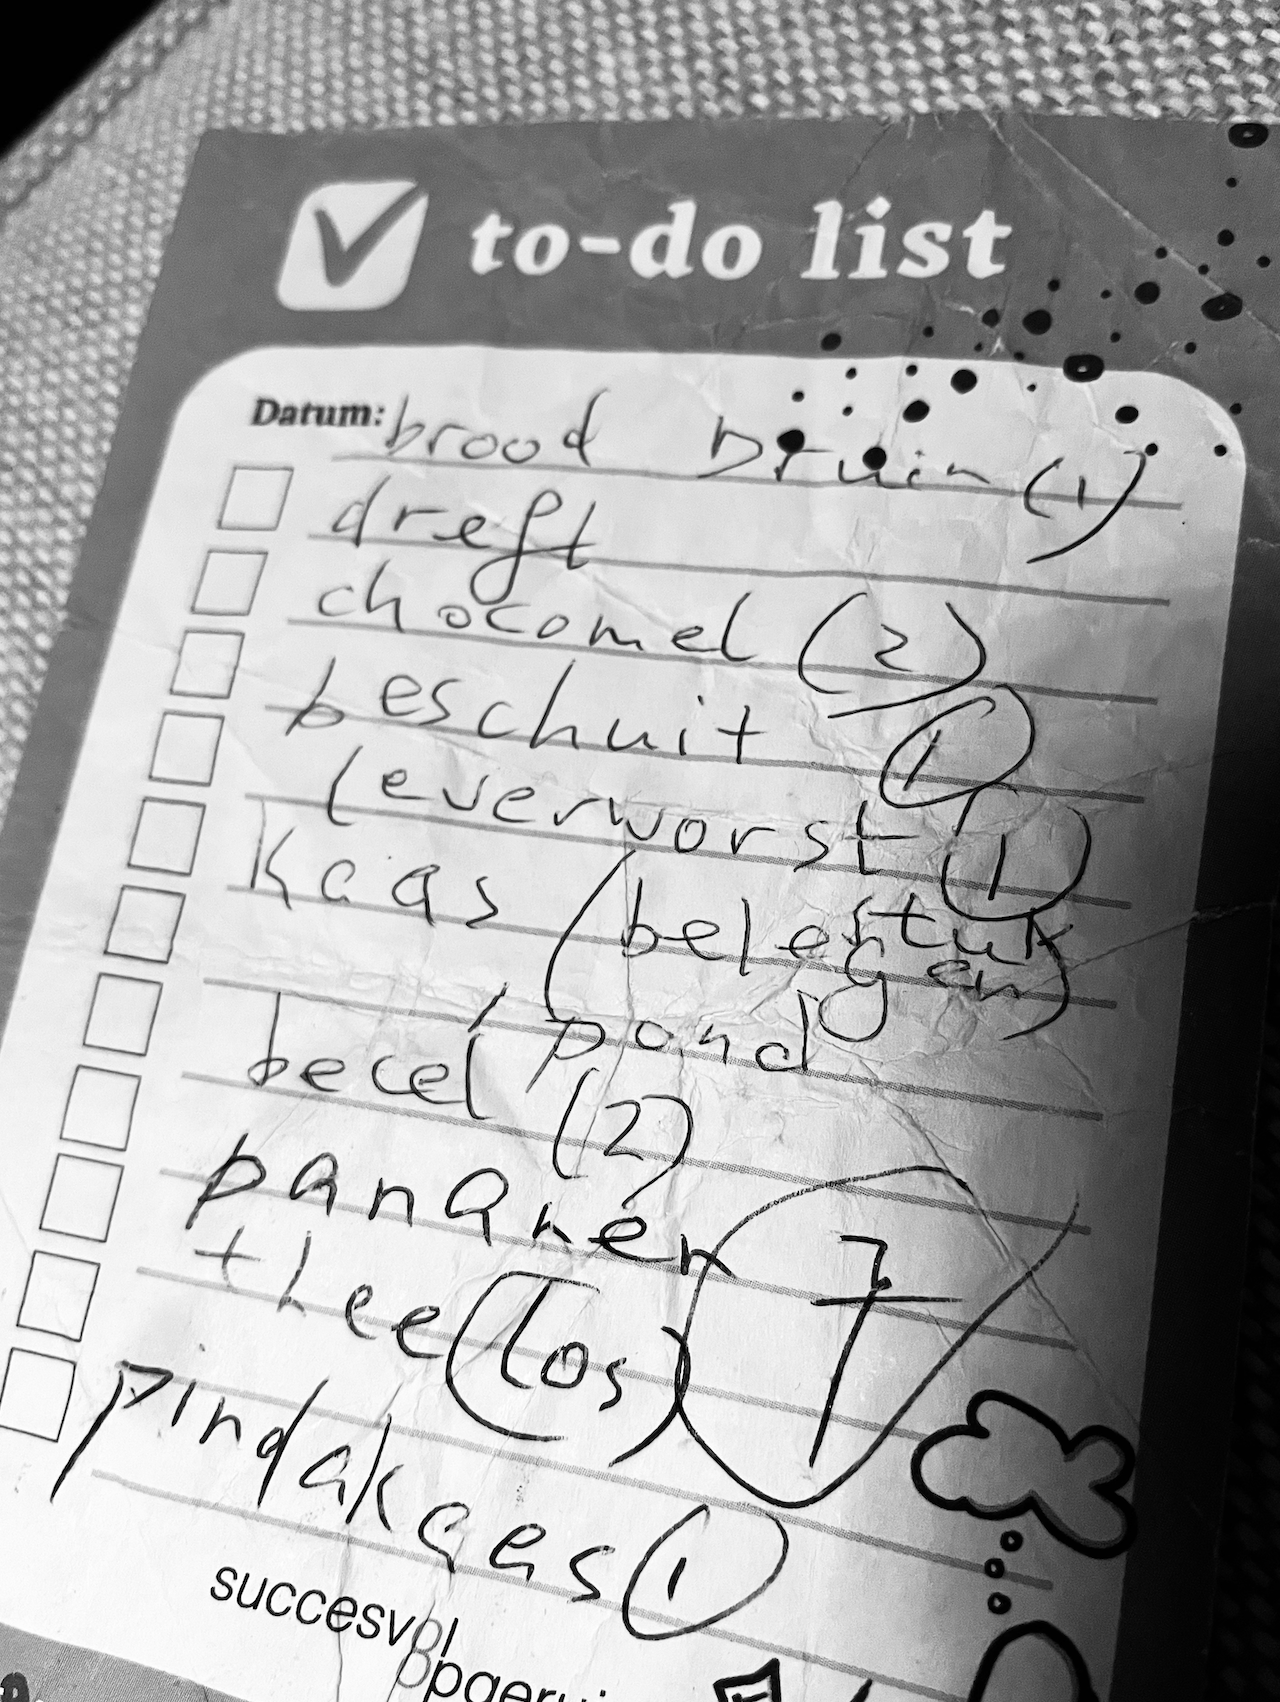 to-do list
Datum: brood bruin (1)
dreft
chocomel (2)
beschuit (1)
leverworst (1)
kaas (belegen stuk)
pond
becel (2)
pananen 7
thee (los)
pindakaas (1)
succesvol
opgerui